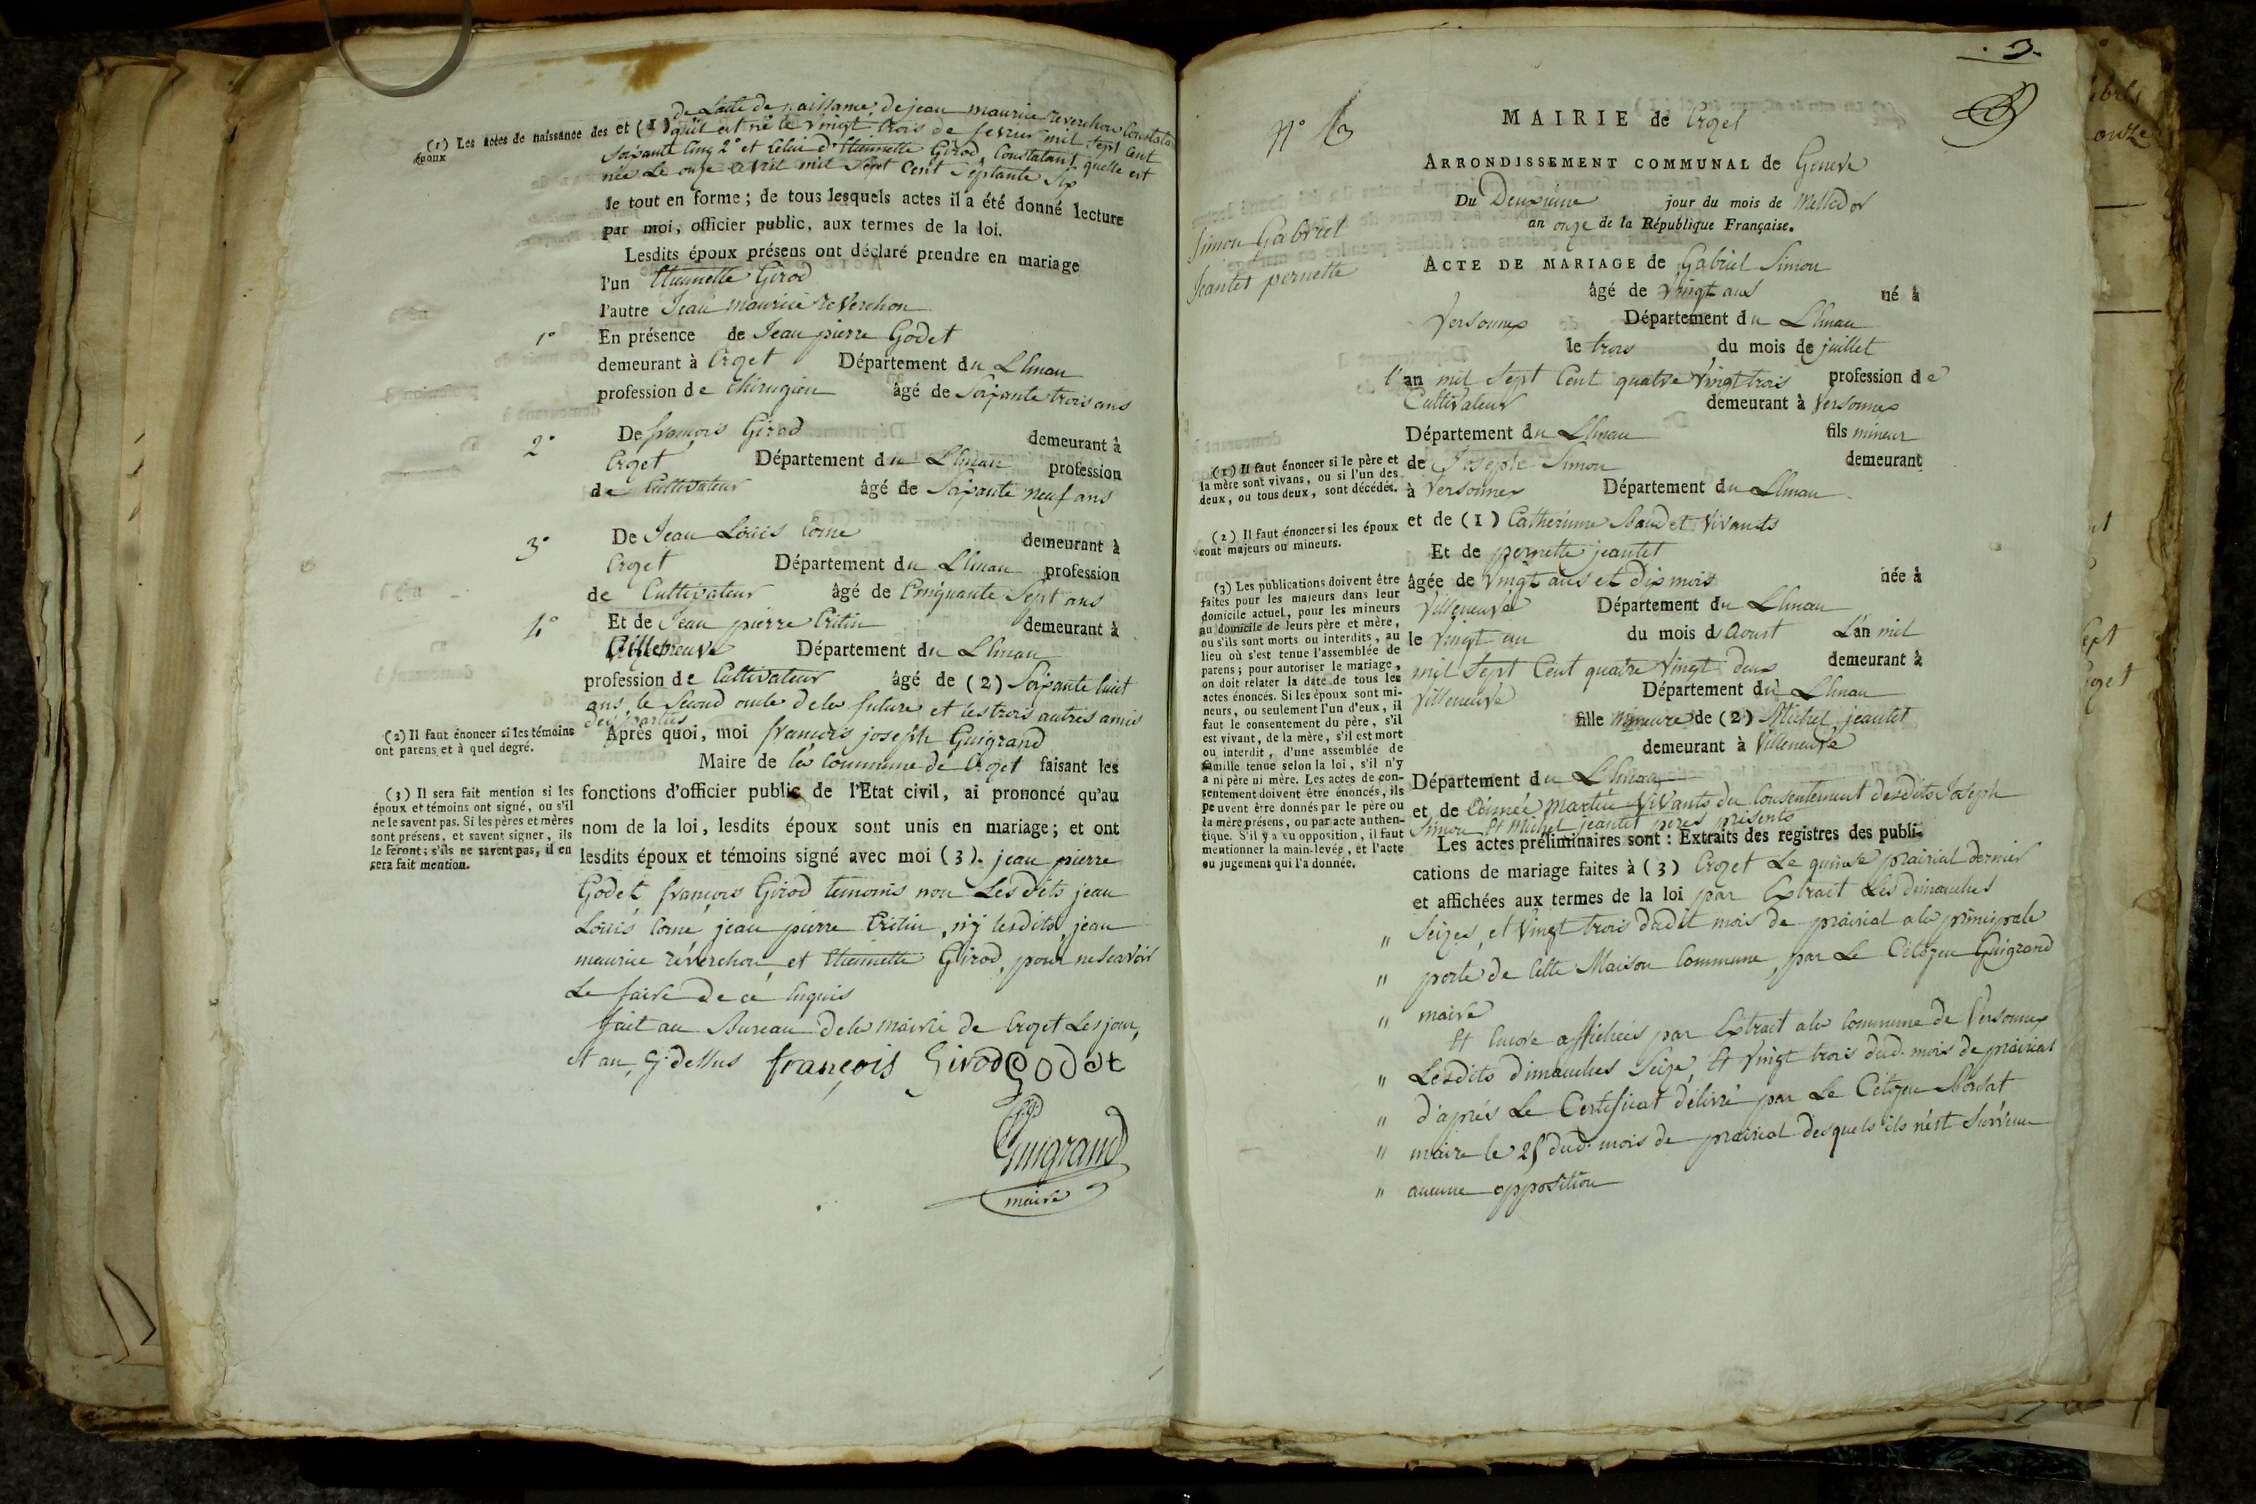 de Lacte de naissance de jean maurice reverchon Constatant
(1) Les actes de naissance des époux
et (1) quil est né le vingt trois de fevrier mil sept Cent
soixante Cinq 2° et Celui d'Etiennette Girod, Constatant quelle est
née Le onze avril mil sept Cent septante six
le tout en forme; de tous lesquels actes il a été donné lecture
par moi, officier public, aux termes de la loi.
Lesdits époux présens ont déclaré prendre en mariage
l'un Etiennette Girod
l'autre Jean maurice reverchon
1° En présence de Jean pierre Godet
demeurant à Crozet Département du Léman
profession de chirugien âgé de soixante trois ans
2° De françois Girod demeurant à
Crozet Département du Léman profession
de Cultivateur âgé de soixante neuf ans
3° De Jean Louis Corne demeurant à
Crozet Département du Léman profession
de Cultivateur âgé de Cinquante sept ans
4° Et de Jean pierre Critin demeurant à
Villeneuve Département du Léman
profession de Cultivateur âgé de (2) soixante huit
ans, le second oncle dela future et les trois autres amis
des parties
(2) Il faut énoncer si les témoins
ont parens et à quel degré.
Après quoi, moi françois joseph Guigrand
Maire de la Commune de Crozet faisant les
fonctions d'officier public de l'Etat civil, ai prononcé qu'au
nom de la loi, lesdits époux sont unis en mariage; et ont
lesdits époux et témoins signé avec moi (3). jean pierre
(3) Il sera fait mention si les
époux et témoins ont signé, ou s'il
ne le savent pas. Si les pères et mères
sont présens, et savent signer, ils
le feront; s'ils ne savent pas, il en
sera fait mention.
Godet, françois Girod temoins non Lesdits jean
Louis Corne jean pierre Critin, ny lesdits jean
maurice réverchon, et Etiennette Girod, pour ne savoir
Le faire de ce Enquis
fait au Bureau dela mairie de Crozet Les jour,
et an Cy dessus françois Girod Godet
Guigrand
maire
3
N° 3
MAIRIE de Crozet
ARRONDISSEMENT COMMUNAL de Geneve
Du Deuxieme jour du mois de Messidor
an onze de la République Française.
Simon Gabriel
Jeantet pernette
ACTE DE MARIAGE de Gabriel Simon
âgé de vingt ans né à
Versonnex Département du Léman
le trois du mois de juillet
l'an mil sept Cent quatre vingt trois profession de
Cultivateur demeurant à Versonnex
Département du Léman fils mineur
de Joseph Simon demeurant
à Versonnex Département du Léman
et de (1) Catherinne Baudet vivants
Et de pernette jeantet
âgée de vingt ans et dix mois née à
Villeneuve Département du Léman
le vingt un du mois d Aoust L'an mil
mil sept Cent quatre vingt deux demeurant à
Villeneuve Département du Léman
fille mineure de (2) Michel jeantet
demeurant à Villeneuve
Département du Léman
et de Martin vivants du Consentement desdits Joseph
Simon Et Michel jeantet peres présents
(1) Il faut énoncer si le père et
la mère sont vivans, ou si l'un des
deux, ou tous deux, sont décédés.
(2) Il faut énoncer si les époux
sont majeurs ou mineurs.
(3) Les publications doivent être
faites pour les majeurs dans leur
domicile actuel, pour les mineurs
au domicile de leurs père et mère,
ou s'ils sont morts ou interdits, au
lieu où s'est tenue l'assemblée de
parens; pour autoriser le mariage,
on doit relater la date de tous les
actes énoncés. Si les époux sont mi-
neurs, ou seulement l'un d'eux, il
faut le consentement du père, s'il
est vivant, de la mère, s'il est mort
ou interdit, d'une assemblée de
famille tenue selon la loi, s'il n'y
a ni père ni mère. Les actes de con-
sentement doivent être énoncés, ils
peuvent être donnés par le père ou
la mère présens, ou par acte authen-
tique. S'il y a eu opposition, il faut
mentionner la main-levée, et l'acte
ou jugement qui l'a donnée.
Les actes préliminaires sont: Extraits des registres des publi-
cations de mariage faites à (3) Crozet Le quinze prairial dernier
et affichées aux termes de la loi par Extrait Les dimanches
" Seizes, et vingt trois dudit mois de prairial ala principale
" porte de Cette Maison Commune, par Le Citoyen Guigrand
" maire
Et Encore affichées par Extrait ala Commune de Versonnex
" Lesdits dimanches seize, Et vingt trois dud. mois de prairial
" d'après Le Certificat délivré par Le Citoyen
" maire le 25 dud. mois de prairial desquels ils n'est survenu
" aucune opposition